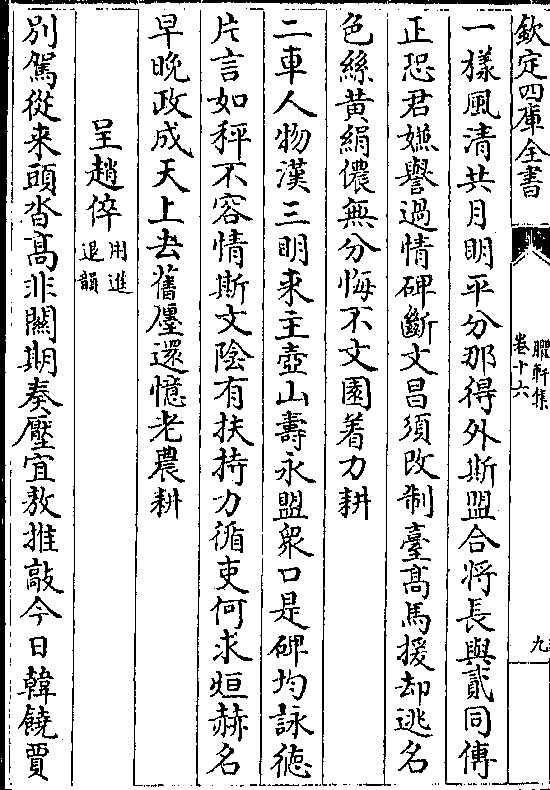 欽定四庫全書
臞軒集
卷十六
九
一樣風清共月明平分那得外斯盟合將長與貳同傳
正恐君嫌譽過情碑斷文昌須改制臺髙馬援却逃名
色絲黄絹儂無分悔不文園着力耕
二車人物漢三明来主壺山壽永盟衆口是碑均詠徳
片言如秤不容情斯文陰有扶持力循吏何求烜赫名
早晚政成天上去舊廛還憶老農耕
呈趙倅
用進
退韻
別駕從来頭㳫髙非闗期奏壓宜敖推敲今日韓饒賈